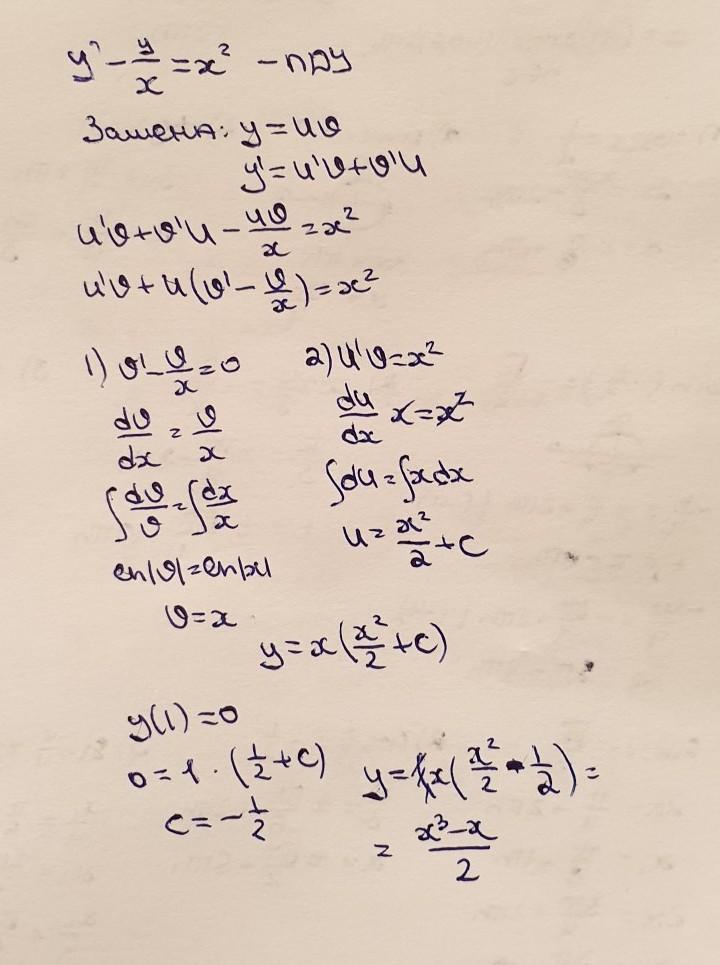 y' - y/x = x² - ЛДУ
Замена: y = uv
y' = u'v + v'u
u'v + v'u - uv/x = x²
u'v + u(v' - v/x) = x²
1) v' - v/x = 0
dv/dx = v/x
∫dv/v = ∫dx/x
ln|v| = ln|x|
v = x
2) u'v = x²
du/dx x = x²
∫du = ∫x dx
u = x²/2 + C
y = x(x²/2 + C)
y(1) = 0
0 = 1 · (1/2 + C)
C = -1/2
y = x(x²/2 - 1/2) =
= (x³ - x)/2